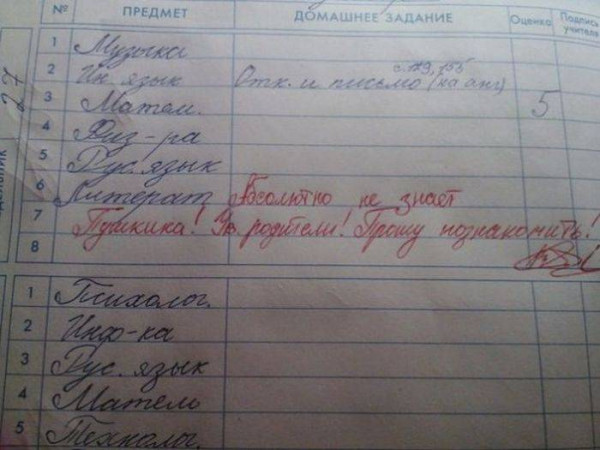 № ПРЕДМЕТ ДОМАШНЕЕ ЗАДАНИЕ Оценка Подпись учителя
1 Музыка
с. 129, 155
2 Ин. язык Отк. и письмо (на анг)
3 Матем. 5
4 Физ-ра
5 Рус. язык
6 Литерат. Абсолютно не знает
7 Пушкина! Ув. родители! Прошу познакомить!
8
1 Психолог.
2 Инф-ка
3 Рус. язык
4 Матем
5 Технолог.
27